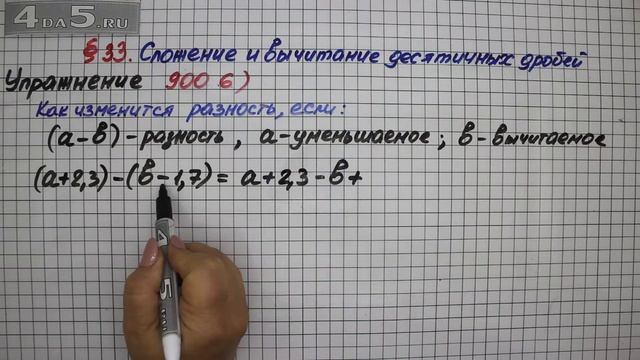 4DA5.RU
§ 33. Сложение и вычитание десятичных дробей
Упражнение 900 б)
Как изменится разность, если:
(а-в) - разность, а - уменьшаемое; в - вычитаемое
(а+2,3)-(в-1,7) = а+2,3-в+
4DA5